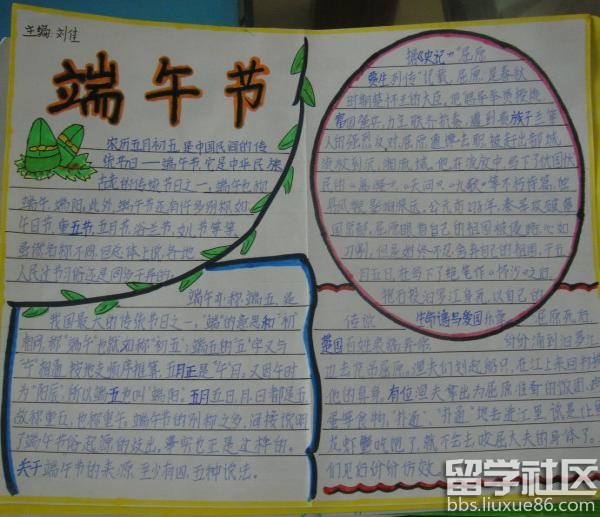 主编:刘佳
端午节
农历五月初五,是中国民间的传
统节日——端午节,它是中华民族
古老的传统节日之一。端午也称
端五,端阳。此外,端午节还有许多别称,如
午日节、重五节,五月节、浴兰节、女儿节等等。
虽然名称不同,但总体上说,各地
人民过节习俗还是同多于异的。
端午亦称端五,是
我国最大的传统节日之一,"端"的意思和"初"
相同,称"端午"也就如称"初五";端五的"五"字又与
"午"相通,按地支顺序推算,五月正是"午"月。又因午时
为"阳辰",所以端五也叫"端阳"。五月五日,月、日都是五,
故称重五,也称重午。端午节的别称之多,间接说明
了端午节俗起源的歧出,事实也正是这样的。
关于端午节的来源,至少有四、五种说法。
据《史记》"屈原
贾生列传"记载,屈原,是春秋
时期楚怀王的大臣。他倡导举贤授能,
富国强兵,力主联齐抗秦,遭到贵族子兰等
人的强烈反对,屈原遭馋去职,被赶出都城,
流放到沅、湘流域。他在流放中,写下了忧国忧
民的《离骚》、《天问》、《九歌》等不朽诗篇,独
具风貌,影响深远。公元前278年,秦军攻破楚
国京都。屈原眼看自己的祖国被侵略,心如
刀割,但是始终不忍舍弃自己的祖国,于五
月五日,在写下了绝笔作《怀沙》之后,
抱石投汨罗江身死,以自己的
传说 生命谱写爱国 屈原死后,
楚国百姓哀痛异常 纷纷涌到汨罗江
边去凭吊屈原。渔夫们划起船只,在江上来回打捞
他的身身。有位渔夫拿出为屈原准备的饭团、鸡
蛋等食物,"扑通、扑通"地丢进江里,说是让鱼
龙虾蟹吃饱了,就不会去咬屈大夫的身体了。
们见后纷纷仿效。
留学社区
bbs.liuxue86.com